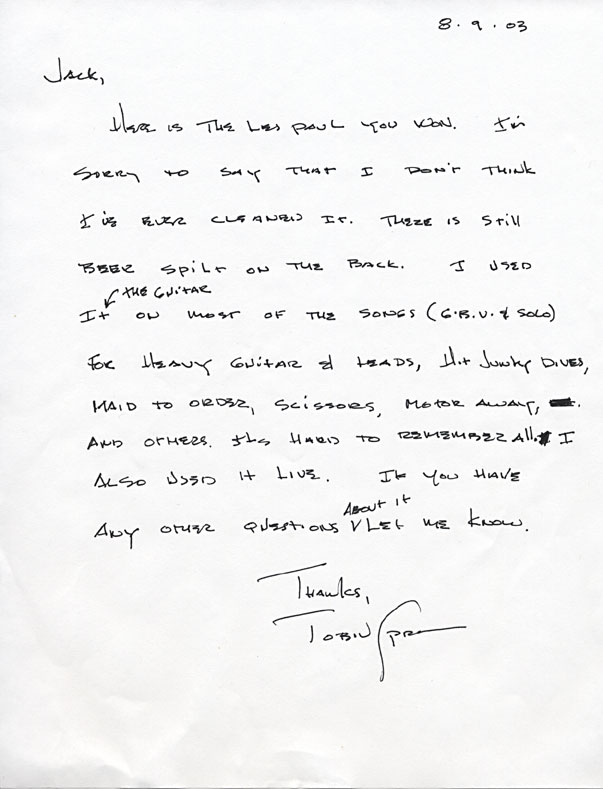 8.9.03
Jack,
Here is the Les Paul you won. I'm
sorry to say that I don't think
I've ever cleaned it. There is still
beer spilt on the back. I used
the guitar
it on most of the songs (G.B.V. & solo)
for heavy guitar & leads, Hit Junky Dives,
Maid to Order, Scissors, Motor Away,
and others. Its hard to remember all. I
also used it live. If you have
about it
any other questions let me know.
Thanks,
Tobin